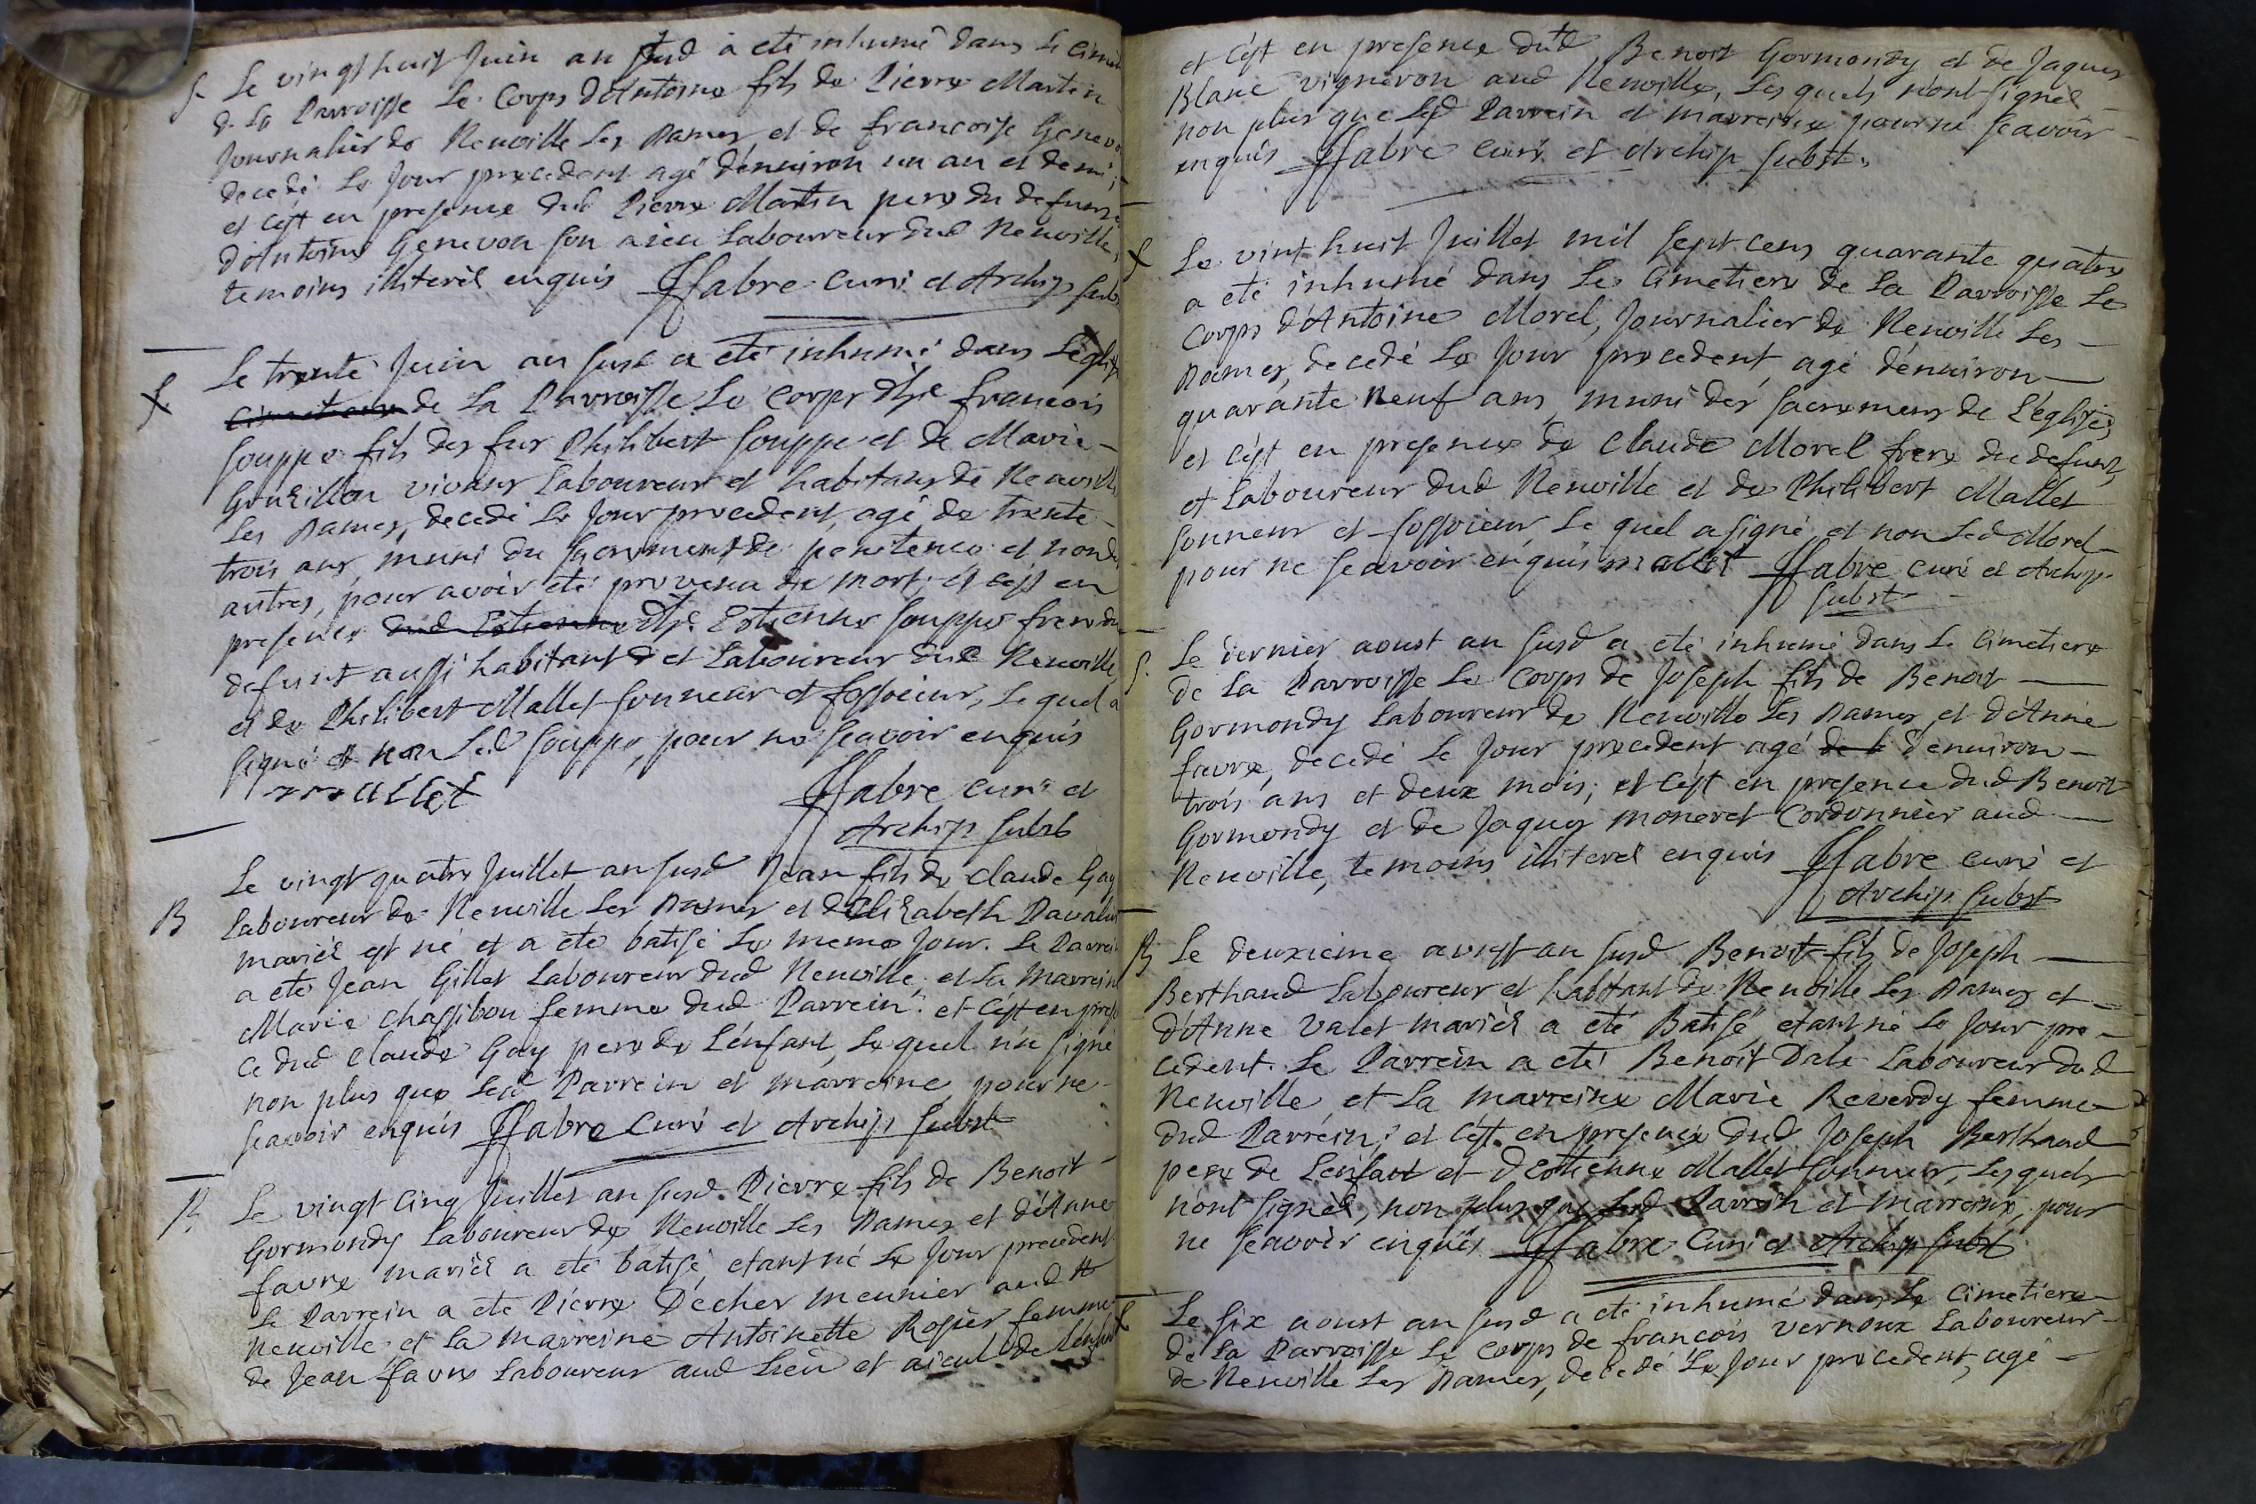 S. Le vingt huit Juin an susd a eté inhumé dans le cimet
de la Parroisse le Corps d'Antoine fils de Pierre Martin
Journalier de Neuville les Dames et de francoise Genevo
decedé le Jour precedent agé d'enuiron un an et demi;
et c'est en presence dud Pierre Martin pere du defunt
d'Antoine Genevon son aieu Laboureur dud Neuville,
temoins illiterés enquis JJfabre curé et Archip subs
S. Le trente Juin an susd a eté inhumé dans L'eglise
cimetiere de La Parroisse Le Corps d'hte francois
Souppe fils des fus Philibert Souppe et de Marie
Gonzillon vivans Laboureurs et habitans de Neuville
Les Dames, decedé Le Jour precedent, agé de trente
trois ans, muni du sacrement de penitence et non d
autres, pour avoir eté prevenu de mort; et c'est en
presence dud Estienne d'hte Estienne Souppe frere du
defunt aussi habitant et Laboureur dud Neuville
et de Philibert Mallet sonneur et fossoieur, Le quel a
signé et non Led Souppe, pour ne sçavoir enquis
mallet JJfabre curé et
Archip subst
B Le vingt quatre Juillet an susd Jean fils de Claude Gay
Laboureur de Neuville Les Dames et d'Elizabeth
mariés est né et a eté batisé Le meme Jour. Le Parrein
a eté Jean Gillet Laboureur dud Neuville, et La Marreine
Marie Chassibou femme dud Parrein: et c'est en presen
ce dud Claude Gay pere de L'enfant, Le quel n'a signé
non plus que Led Parrein et marreine, pour ne
sçavoir enquis JJfabre Curé et Archip subst
B. Le vingt cinq Juillet an susd Pierre fils de Benoit
Gormondy Laboureur de Neuville Les Dames et d'Anne
favre mariés a eté batisé, etant né Le Jour precedent
Le Parrein a eté Pierre Decher meunier aud
Neuville et La Marreine Antoinette Rosier femme
de Jean favre Laboureur aud Lieu et aieul de L'enfant
et c'est en presence dud Benoit Gormondy et de Jaques
Blanc vigneron aud Neuville, Les quels n'ont signé
non plus que Lesd Parrein et marreine pour ne sçavoir
enquis JJfabre curé et Archip subst.
S Le vint huit Juillet mil sept cens quarante quatre
a eté inhumé dans Le Cimetiere de La Parroisse Le
Corps d'Antoine Morel, Journalier de Neuville Les
Dames, decedé Le Jour precedent, agé d'enuiron
quarante Neuf ans, muni des sacremens de L'eglise;
et c'est en presence de Claude Morel frere du defunt,
et Laboureur dud Neuville et de Philibert Mallet
sonneur et fossoieur, Le quel a signé, et non Led Morel
pour ne sçavoir enquis mallet JJfabre curé et Archip.
subst
S. Le dernier aoust an susd a eté inhumé dans Le Cimetiere
de La Parroisse Le Corps de Joseph fils de Benoit
Gormondy Laboureur de Neuville Les Dames, et d'Anne
favre, decedé Le Jour precedent agé d'enuiron
trois ans et deux mois; et c'est en presence dud Benoit
Gormondy et de Jaques moneret Cordonnier aud
Neuville, temoins illiterés enquis JJfabre curé et
Archip subst
B Le deuxieme aoust an susd Benoit fils de Joseph
Berthaud Laboureur et habitant de Neuville Les Dames et
d'Anne Valet mariés a eté Batisé, etant né Le Jour pre
cedent. Le Parrein a eté Benoit Dale Laboureur dud
Neuville et La Marreine Marie Reverdy femme
dud Parrein; et c'est en presence dud Joseph Berthaud
pere de L'enfant et d'Estienne Mallet sonneur, Les quels
n'ont signés, non plus que Lesd Parrein et marreine, pour
ne sçavoir enquis JJfabre Curé et Archip subst
S Le six aoust an susd a eté inhumé dans Le Cimetiere
de La Parroisse Le Corps de francois Vernoux Laboureur
de Neuville Les Dames, decedé Le Jour precedent, agé